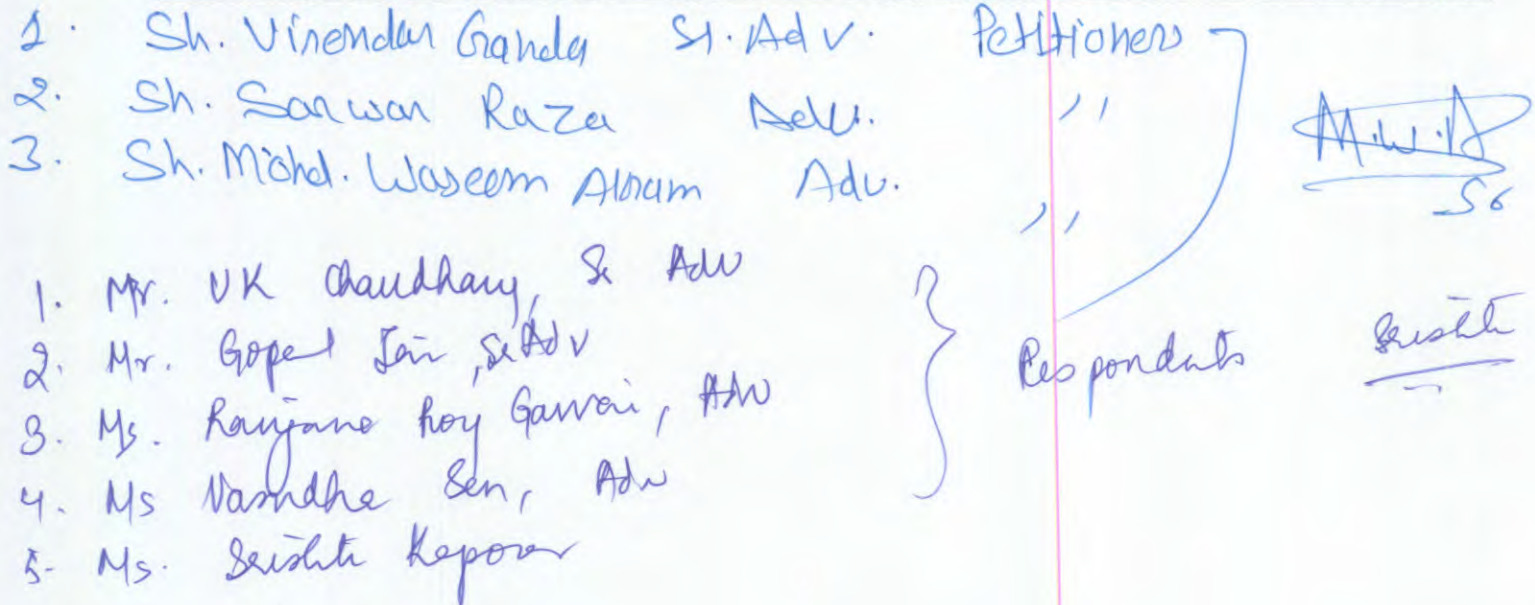 1. Sh. Virendar Ganda Sr. Adv. Petitioners
2. Sh. Sarwar Raza Adv. ,,
3. Sh. Mohd. Waseem Akram Adv. ,,
M.W.A
1. Mr. UK Chaudhary, Sr Adv
2. Mr. Gopal Jain, Sr Adv
3. Ms. Ranjana Roy Gawai, Adv
4. Ms Vasudha Sen, Adv
5. Ms. Srishti Kapoor
Respondents Srishti